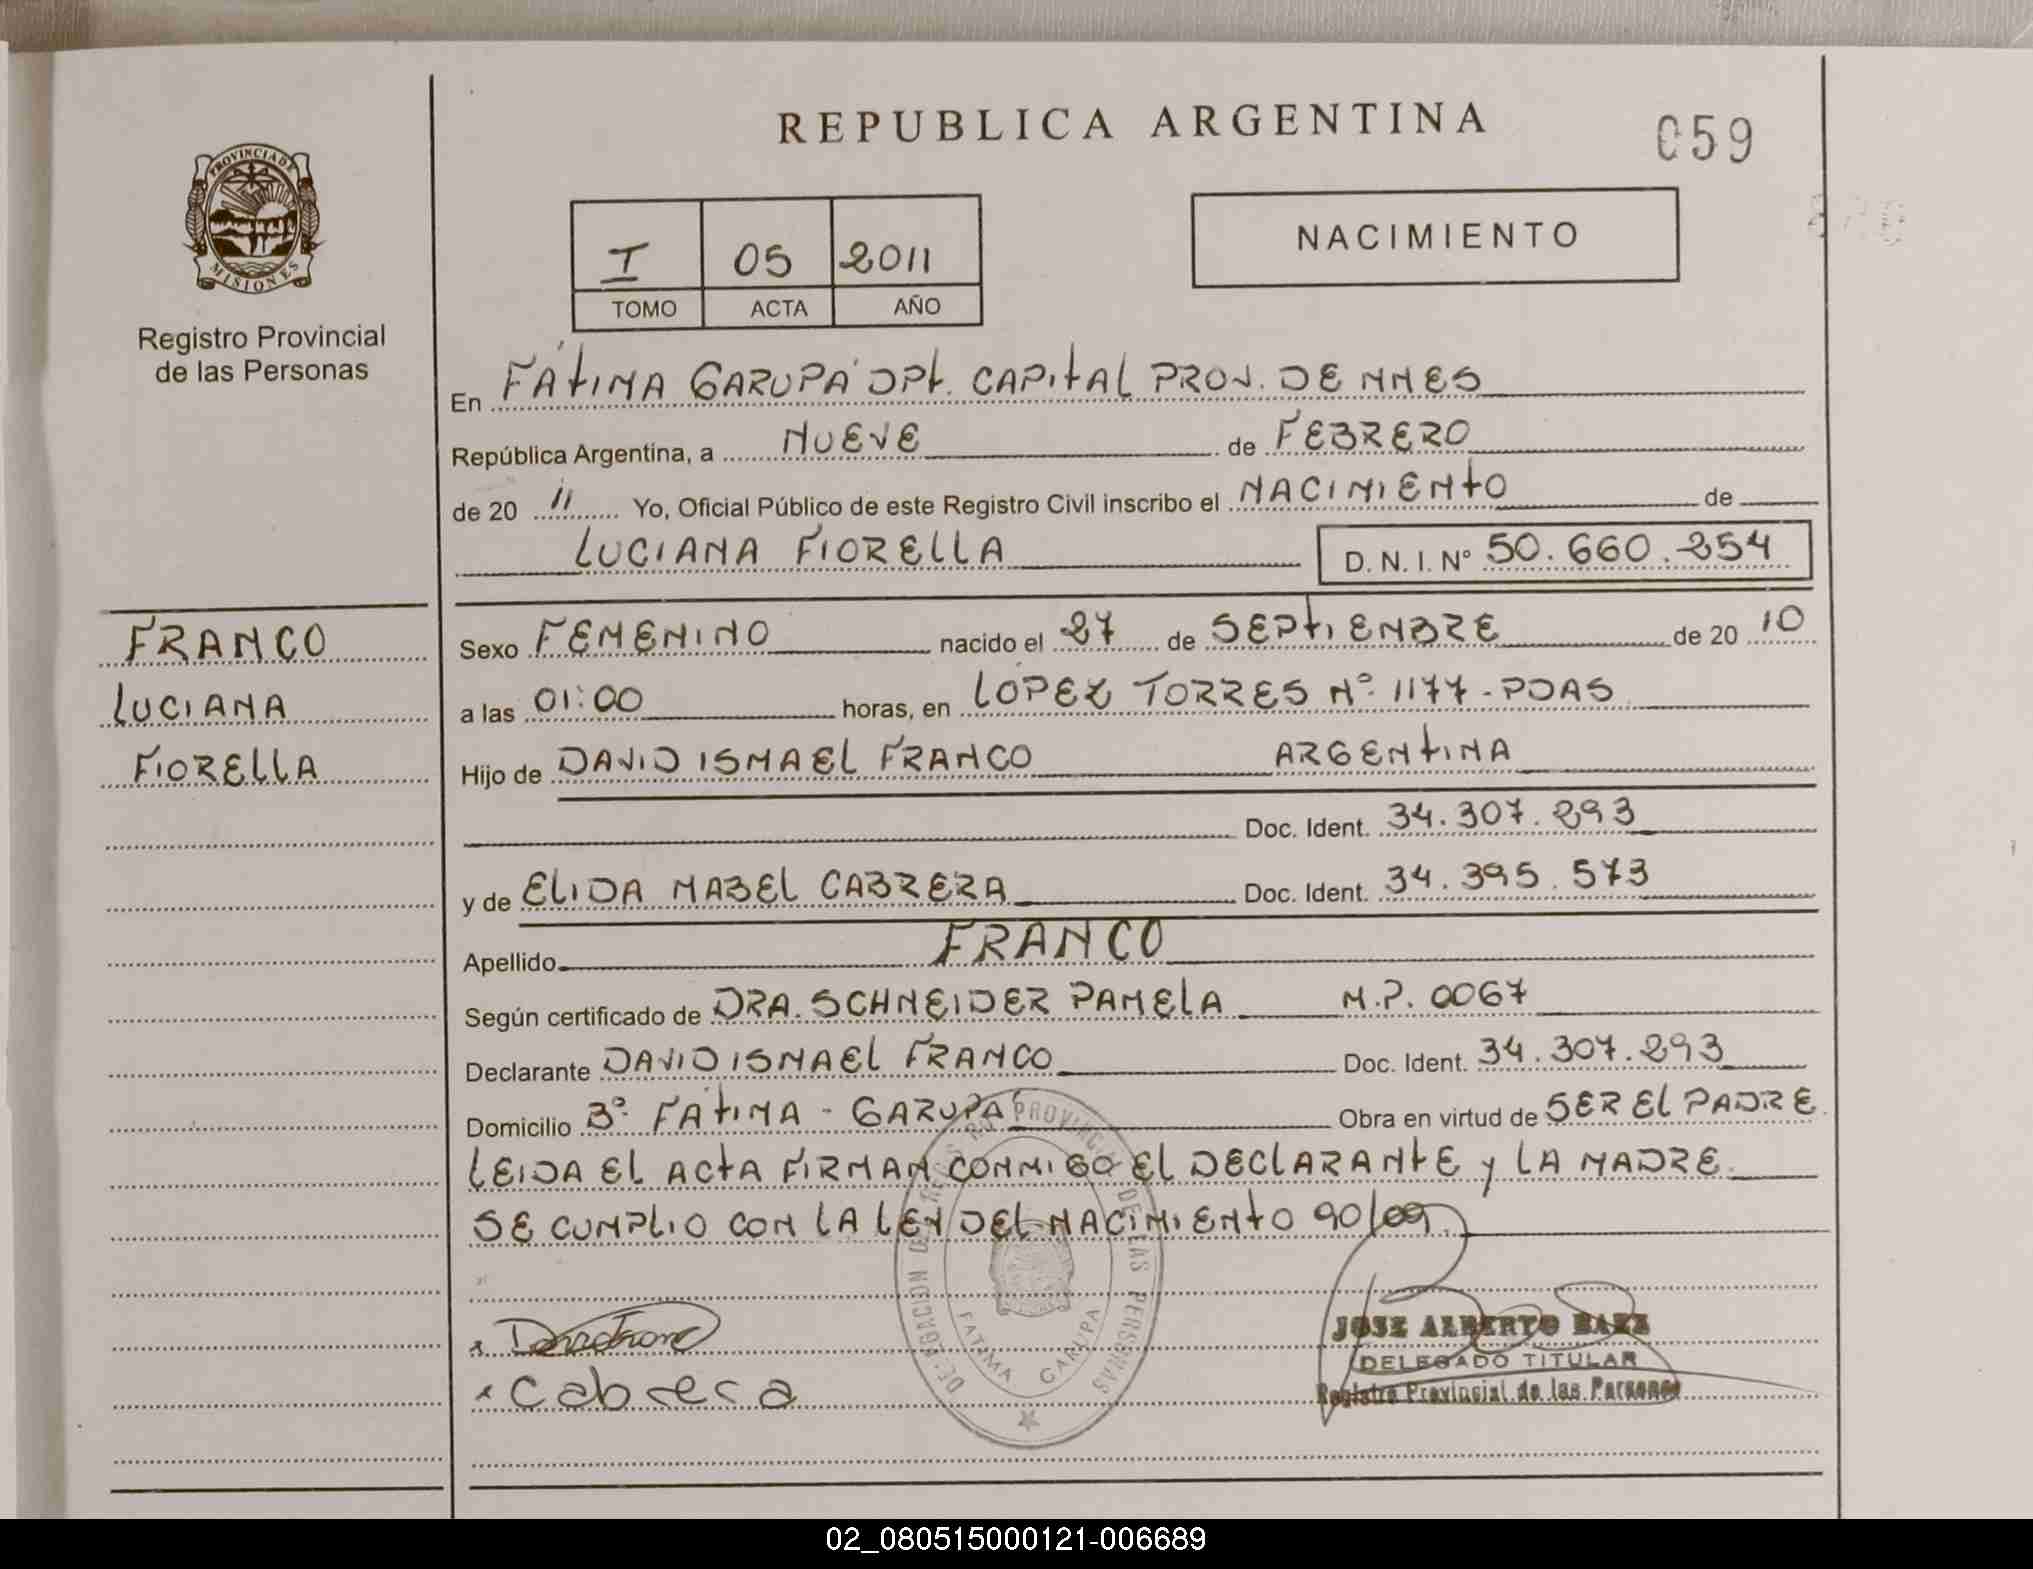 REPUBLICA ARGENTINA
059
PROVINCIA DE
MISIONES
Registro Provincial
de las Personas
I 05 2011
TOMO ACTA AÑO
NACIMIENTO
En FÁTIMA GARUPÁ DPt. CAPITAL PROV. DE MNES
República Argentina, a NUEVE de FEBRERO
de 20 11 Yo, Oficial Público de este Registro Civil inscribo el NACIMIENTO de
LUCIANA FIORELLA D. N. I. Nº 50.660.254
FRANCO
LUCIANA
FIORELLA
Sexo FEMENINO nacido el 27 de SEPTIEMBRE de 20 10
a las 01:00 horas, en LOPEZ TORRES Nº 1177 - PDAS
Hijo de DAVID ISMAEL FRANCO ARGENTINA
Doc. Ident. 34.307.293
y de ELIDA MABEL CABRERA Doc. Ident. 34.395.573
Apellido FRANCO
Según certificado de DRA. SCHNEIDER PAMELA M.P. 0067
Declarante DAVID ISMAEL FRANCO Doc. Ident. 34.307.293
Domicilio Bº FÁTIMA - GARUPÁ Obra en virtud de SER EL PADRE
LEIDA EL ACTA FIRMAN CONMIGO EL DECLARANTE y LA MADRE.
SE CUMPLIO CON LA LEY DEL NACIMIENTO 90/09.
PROVINCIAL DE LAS PERSONAS
FATIMA GARUPA
Cabrera
JOSE ALBERTO BAEZ
DELEGADO TITULAR
Registro Provincial de las Personas
02_080515000121-006689